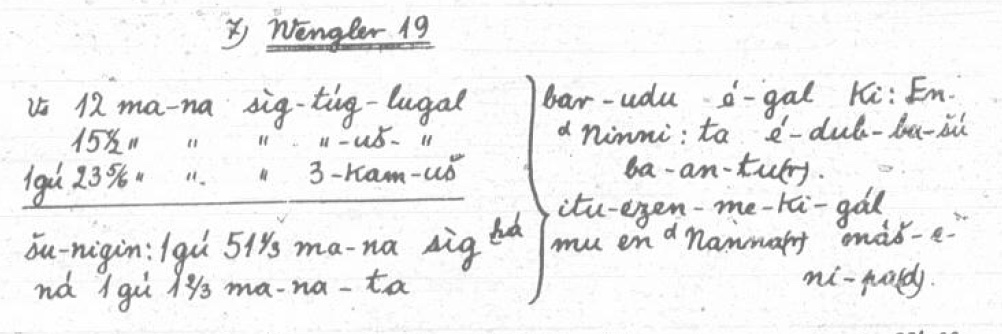 7) Wengler 19
Vs 12 ma-na sìg-túg-lugal
15½ " " " "-uš- "
1gú 23⅚ " " " 3-kam-uš
šu-nigin: 1gú 51⅓ ma-na sìg há
ná 1 gú 1⅔ ma-na-ta
bar-udu é-gal Ki: En-
ᵈNinni: ta é-dub-ba-šú
ba-an-tu(r).
itu-ezen-me-ki-gál
mu en ᵈNanna(r) máš-e-
ni-pa(d).